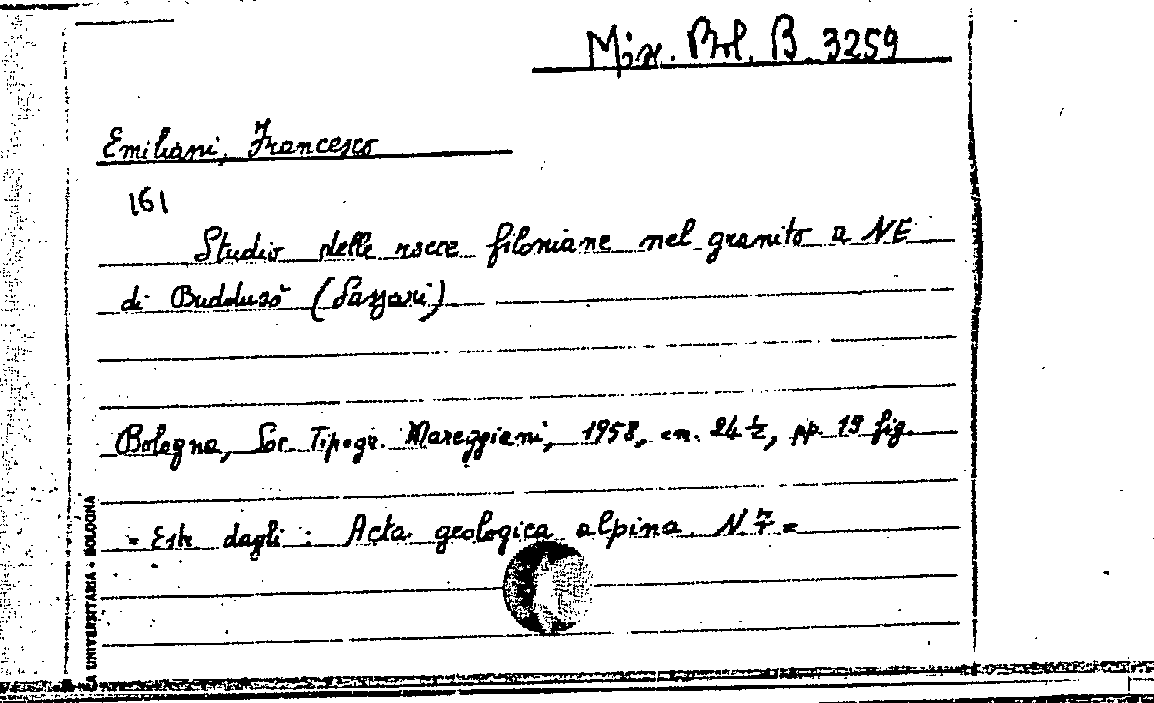 Mix. Bol. B. 3259
Emiliani, Francesco
161
Studio delle rocce filoniane nel granito a NE
di Buddusò (Sassari)
Bologna, Soc. Tipogr. Mareggiani, 1958, cm. 24½, pp. 19 fig.
= Estr. dagli: Acta geologica alpina N. 7 =
CA UNIVERSITARIA - BOLOGNA